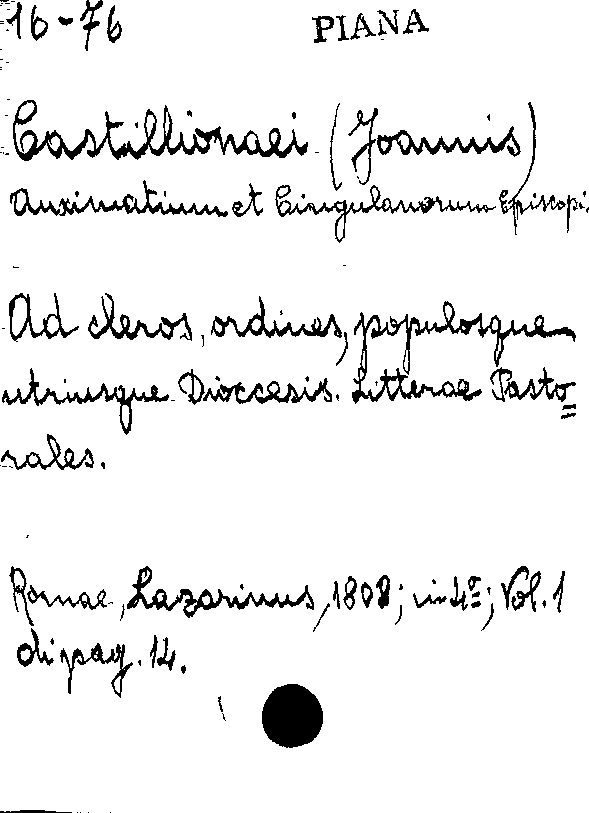 16-76 PIANA
Castillionaei (Joannis)
Auximatium et Cingulanorum Episcopi.
Ad cleros, ordines, populosque
utriusque Dioccesis. Litterae Pasto=
rales.
Romae, Lazarinus, 1808; in 4º; Vol. 1
di pag. 14.